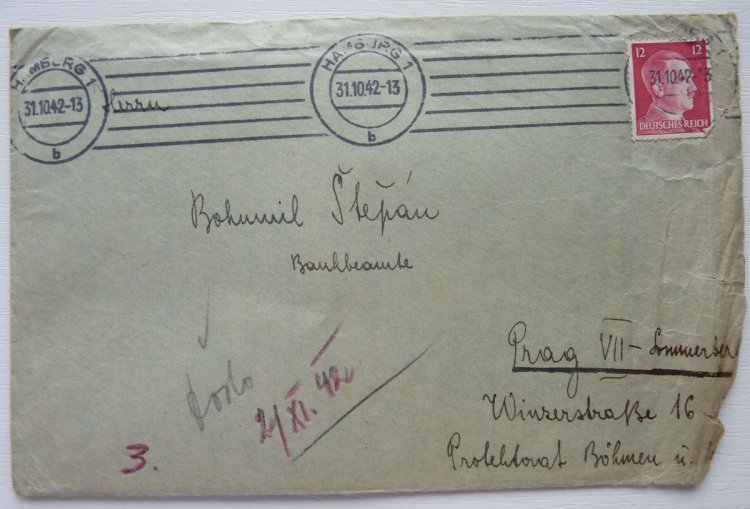 HAMBURG 1
31.10.42-13
b
HAMBURG 1
31.10.42-13
b
12 12
31.10.42-13
DEUTSCHES REICH
Herrn
Bohumil Štěpán
Bankbeamte
Prag VII - Sommerber
Winzerstraße 16
Protektorat Böhmen u.
došlo
2/XI. 42
3.